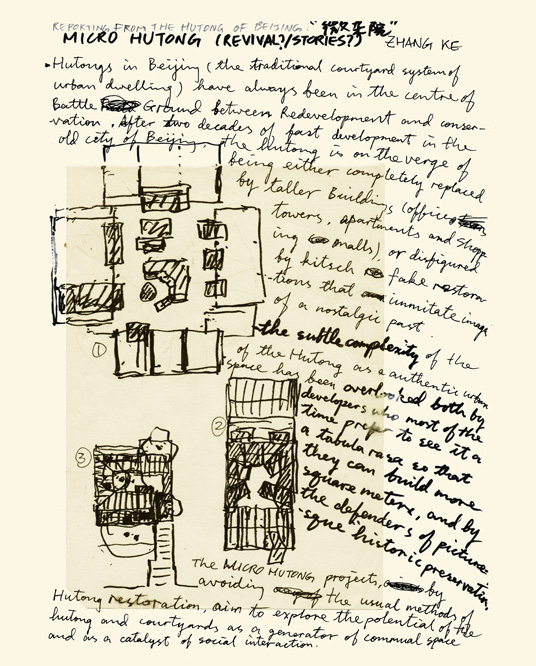 REPORTING FROM THE HUTONG OF BEIJING. "微杂院"
MICRO HUTONG (REVIVAL?/STORIES?) ZHANG KE
Hutongs in Beijing (the traditional courtyard system of
urban dwelling) have always been in the centre of
Battle Ground between Redevelopment and conser-
vation. After two decades of fast development in the
old city of Beijing, the hutong is on the verge of
being either completely replaced
by taller Buildings (office
towers, apartments and shopp
ing malls), or disfigured
by kitsch fake restora-
tions that immitate image
of a nostalgic past.
the subtle complexity of the
of the Hutong as a authentic urban
space has been overlooked both by
developers who most of the
time prefer to see it a
a tabula rasa so that
they can build more
square meters, and by
the defenders of pictures-
sque historic preservation
①
②
③
The MICRO HUTONG projects, by
avoiding the usual methods of
Hutong restoration, aim to explore the potential of the
hutong and courtyards as a generator of communal space
and as a catalyst of social interaction.